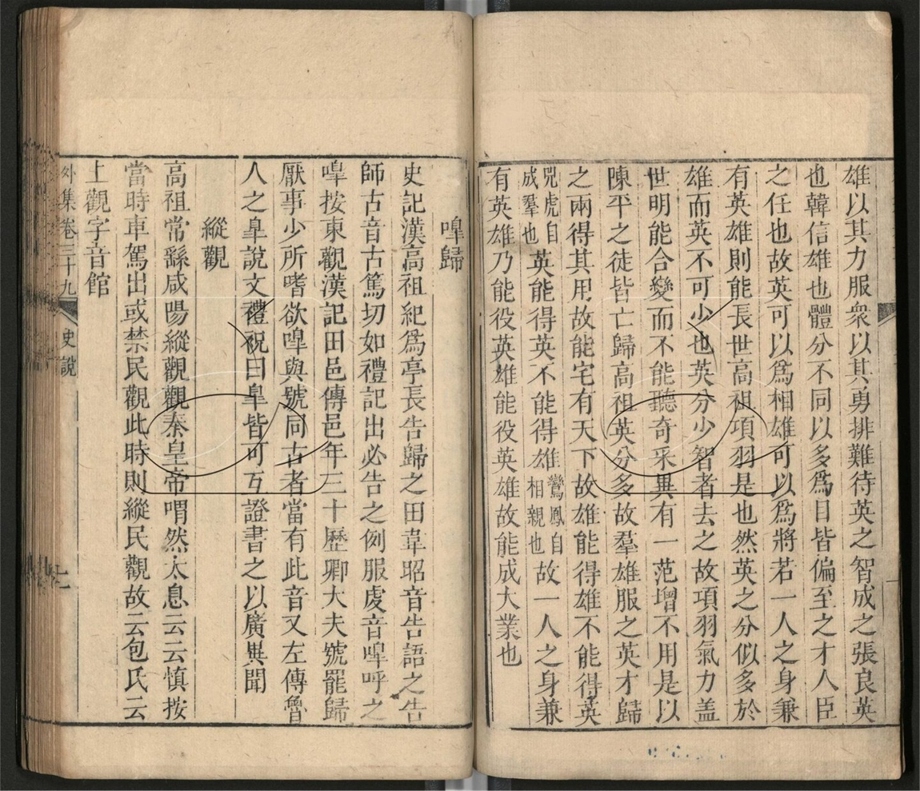 雄以其力服衆以其勇排難待英之智成之張良英
也韓信雄也體分不同以多爲目皆偏至之才人臣
之任也故英可以爲相雄可以爲將若一人之身兼
有英雄則能長世高祖項羽是也然英之分似多於
雄而英不可少也英分少智者去之故項羽氣力盖
世明能合變而不能聽奇采異有一范增不用是以
陳平之徒皆亡歸高祖英分多故羣雄服之英才歸
之兩得其用故能宅有天下故雄能得雄不能得英
兕虎自成羣也英能得英不能得雄鸞鳳自相親也故一人之身兼
有英雄乃能役英雄能役英雄故能成大業也
嘷歸
史記漢高祖紀爲亭長告歸之田韋昭音告語之告
師古音古篤切如禮記出必告之例服䖍音嘷呼之
嘷按東觀漢記田邑傳邑年三十歷卿大夫號罷歸
厭事少所嗜欲嘷與號同古者當有此音又左傳魯
人之臯說文禮祝曰臯皆可互證書之以廣異聞
縱觀
高祖常繇咸陽縱觀觀秦皇帝喟然太息云云慎按
當時車駕出或禁民觀此時則縱民觀故云包氏云
上觀字音館
外集卷三十九 史說